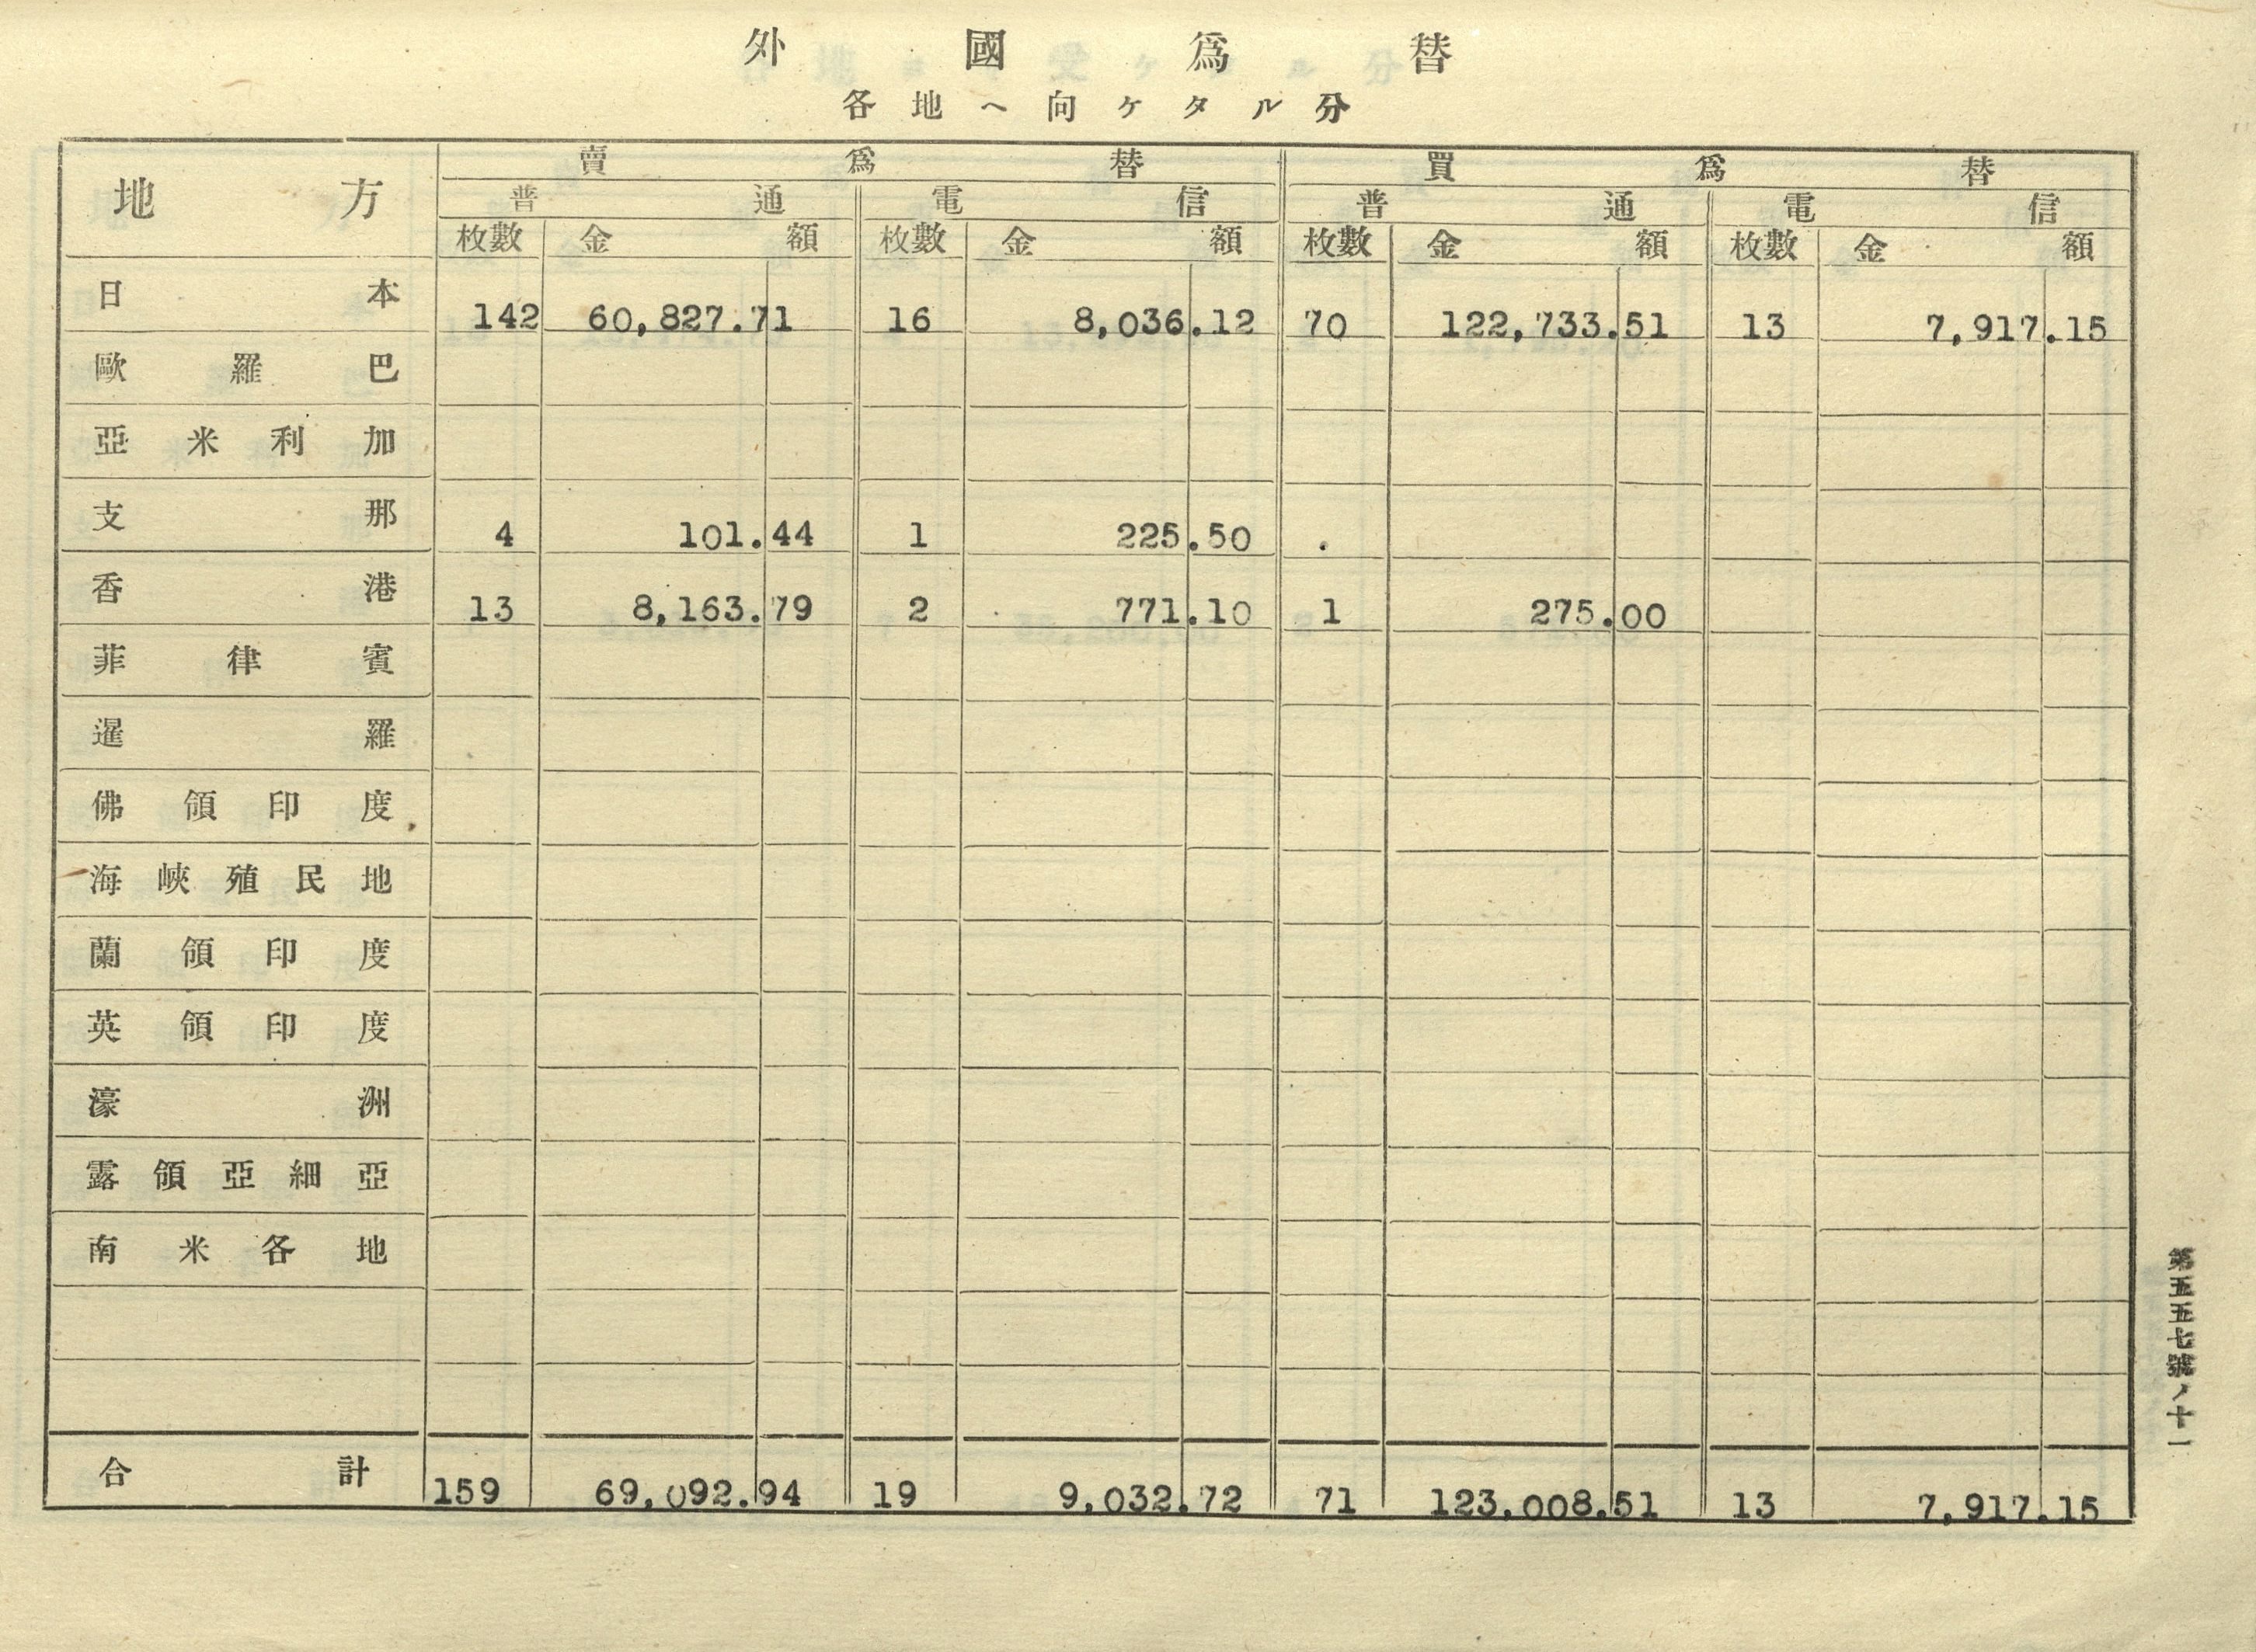 外國爲替
各地ヘ向ケタル分
地方 賣爲替 買爲替
普通 電信 普通 電信
枚數 金額 枚數 金額 枚數 金額 枚數 金額
日本 142 60,827.71 16 8,036.12 70 122,733.51 13 7,917.15
歐羅巴
亞米利加
支那 4 101.44 1 225.50 .
香港 13 8,163.79 2 771.10 1 275.00
菲律賓
暹羅
佛領印度
海峽殖民地
蘭領印度
英領印度
濠洲
露領亞細亞
南米各地
合計 159 69,092.94 19 9,032.72 71 123,008.51 13 7,917.15
第五五七號ノ十一